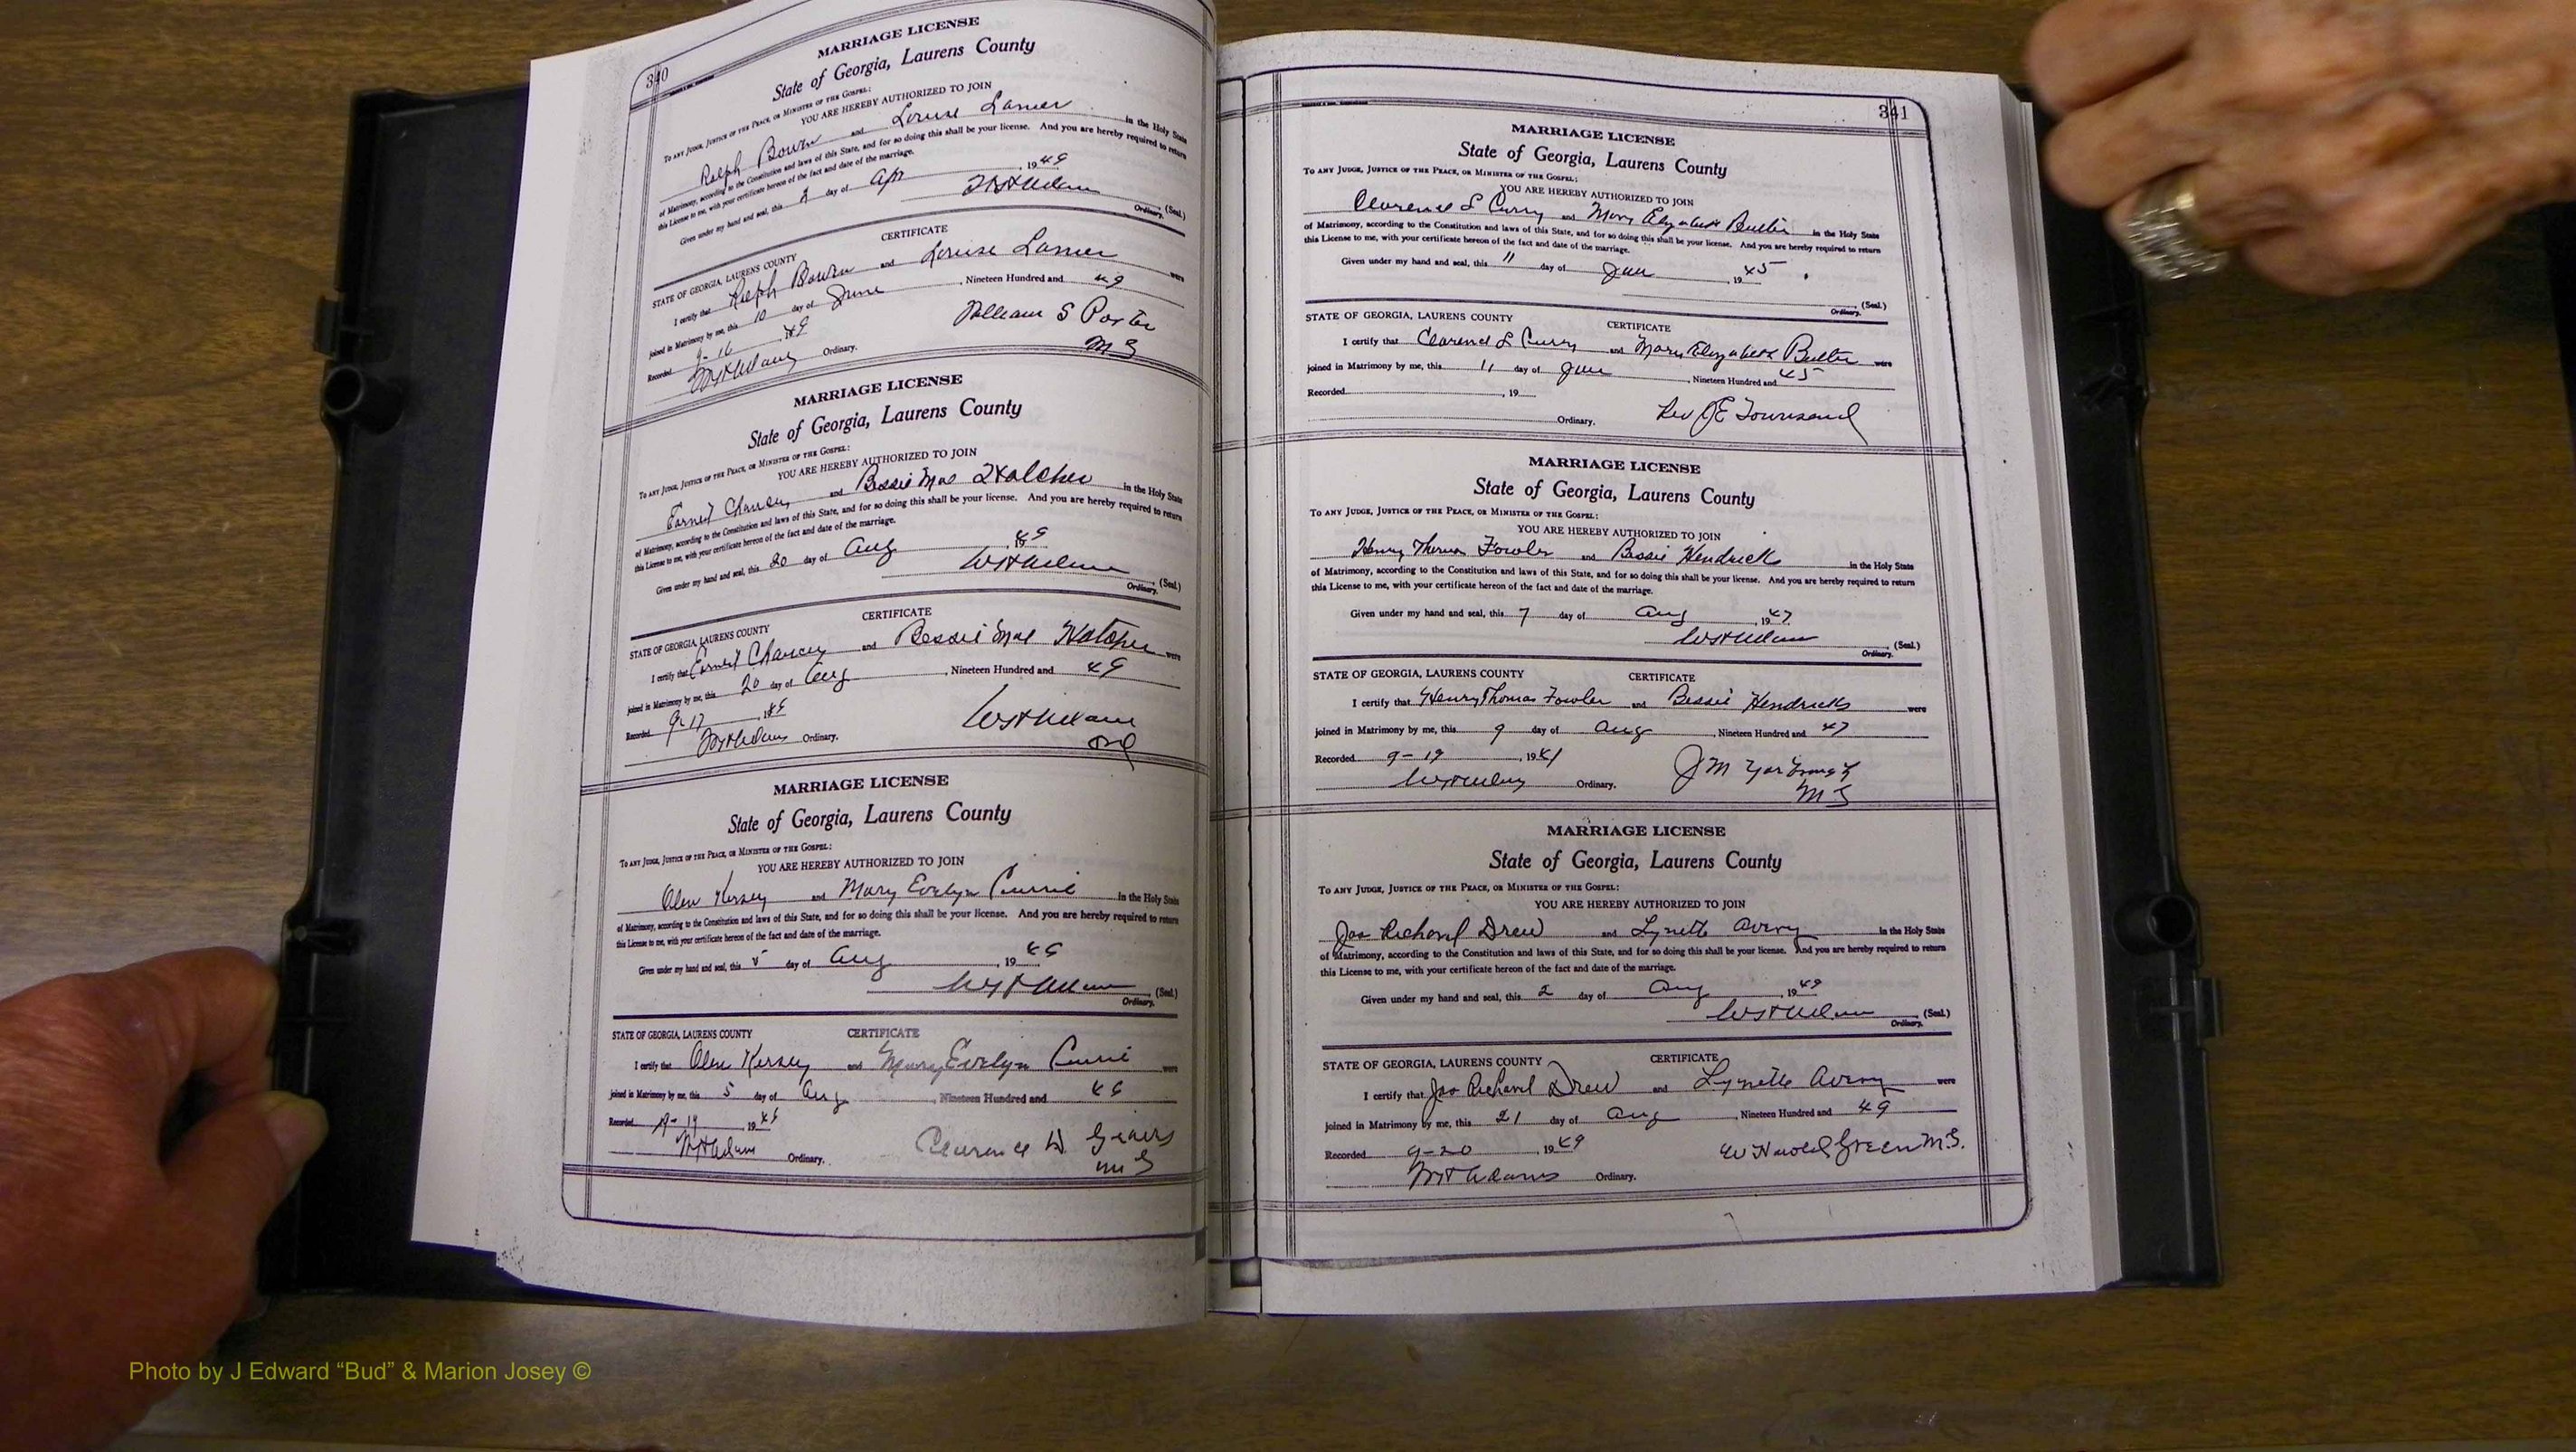 340
MARRIAGE LICENSE
State of Georgia, Laurens County
TO ANY JUDGE, JUSTICE OF THE PEACE, OR MINISTER OF THE GOSPEL:
YOU ARE HEREBY AUTHORIZED TO JOIN
Ralph Bowen and Louise Lanier in the Holy State
of Matrimony, according to the Constitution and laws of this State, and for so doing this shall be your license. And you are hereby required to return
this License to me, with your certificate hereon of the fact and date of the marriage.
Given under my hand and seal, this 2 day of Apr, 1949
(Seal.)
Ordinary.
CERTIFICATE
STATE OF GEORGIA, LAURENS COUNTY
I certify that Ralph Bowen and Louise Lanier were
joined in Matrimony by me, this 10 day of June, Nineteen Hundred and 49
Recorded 9-16, 49 William S Porter
Ordinary. M G
MARRIAGE LICENSE
State of Georgia, Laurens County
TO ANY JUDGE, JUSTICE OF THE PEACE, OR MINISTER OF THE GOSPEL:
YOU ARE HEREBY AUTHORIZED TO JOIN
Earnest Chancey and Bessie Mae Hatcher in the Holy State
of Matrimony, according to the Constitution and laws of this State, and for so doing this shall be your license. And you are hereby required to return
this License to me, with your certificate hereon of the fact and date of the marriage.
Given under my hand and seal, this 20 day of Aug 49
(Seal.)
Ordinary.
CERTIFICATE
STATE OF GEORGIA, LAURENS COUNTY
I certify that Earnest Chancey and Bessie Mae Hatcher were
joined in Matrimony by me, this 20 day of Aug, Nineteen Hundred and 49
Recorded 9-17, 49
Ordinary. Ord
MARRIAGE LICENSE
State of Georgia, Laurens County
TO ANY JUDGE, JUSTICE OF THE PEACE, OR MINISTER OF THE GOSPEL:
YOU ARE HEREBY AUTHORIZED TO JOIN
Olen Kersey and Mary Evelyn Currie in the Holy State
of Matrimony, according to the Constitution and laws of this State, and for so doing this shall be your license. And you are hereby required to return
this License to me, with your certificate hereon of the fact and date of the marriage.
Given under my hand and seal, this 5 day of Aug, 1949
(Seal.)
Ordinary.
STATE OF GEORGIA, LAURENS COUNTY CERTIFICATE
I certify that Olen Kersey and Mary Evelyn Currie were
joined in Matrimony by me, this 5 day of Aug, Nineteen Hundred and 49
Recorded 9-19, 1949
Ordinary. Clarence W
M G
341
MARRIAGE LICENSE
State of Georgia, Laurens County
TO ANY JUDGE, JUSTICE OF THE PEACE, OR MINISTER OF THE GOSPEL:
YOU ARE HEREBY AUTHORIZED TO JOIN
Clarence L Curry and Mary Elizabeth Butler in the Holy State
of Matrimony, according to the Constitution and laws of this State, and for so doing this shall be your license. And you are hereby required to return
this License to me, with your certificate hereon of the fact and date of the marriage.
Given under my hand and seal, this 11 day of Jun, 1945
(Seal.)
Ordinary.
STATE OF GEORGIA, LAURENS COUNTY CERTIFICATE
I certify that Clarence L Curry and Mary Elizabeth Butler were
joined in Matrimony by me, this 11 day of Jun, Nineteen Hundred and 45
Recorded, 19
Ordinary. Rev J E Townsend
MARRIAGE LICENSE
State of Georgia, Laurens County
TO ANY JUDGE, JUSTICE OF THE PEACE, OR MINISTER OF THE GOSPEL:
YOU ARE HEREBY AUTHORIZED TO JOIN
Henry Thomas Fowler and Bessie Hendricks in the Holy State
of Matrimony, according to the Constitution and laws of this State, and for so doing this shall be your license. And you are hereby required to return
this License to me, with your certificate hereon of the fact and date of the marriage.
Given under my hand and seal, this 7 day of Aug, 1947
(Seal.)
Ordinary.
STATE OF GEORGIA, LAURENS COUNTY CERTIFICATE
I certify that Henry Thomas Fowler and Bessie Hendricks were
joined in Matrimony by me, this 9 day of Aug, Nineteen Hundred and 47
Recorded 9-19, 19
Ordinary. J M Yarbrough
M G
MARRIAGE LICENSE
State of Georgia, Laurens County
TO ANY JUDGE, JUSTICE OF THE PEACE, OR MINISTER OF THE GOSPEL:
YOU ARE HEREBY AUTHORIZED TO JOIN
Jas Richard Drew and Lynette Avery in the Holy State
of Matrimony, according to the Constitution and laws of this State, and for so doing this shall be your license. And you are hereby required to return
this License to me, with your certificate hereon of the fact and date of the marriage.
Given under my hand and seal, this 2 day of Aug, 1949
(Seal.)
Ordinary.
STATE OF GEORGIA, LAURENS COUNTY CERTIFICATE
I certify that Jas Richard Drew and Lynette Avery were
joined in Matrimony by me, this 21 day of Aug, Nineteen Hundred and 49
Recorded 9-20, 1949 W Harold Green M.G.
Wm H Adams Ordinary.
Photo by J Edward “Bud” & Marion Josey ©